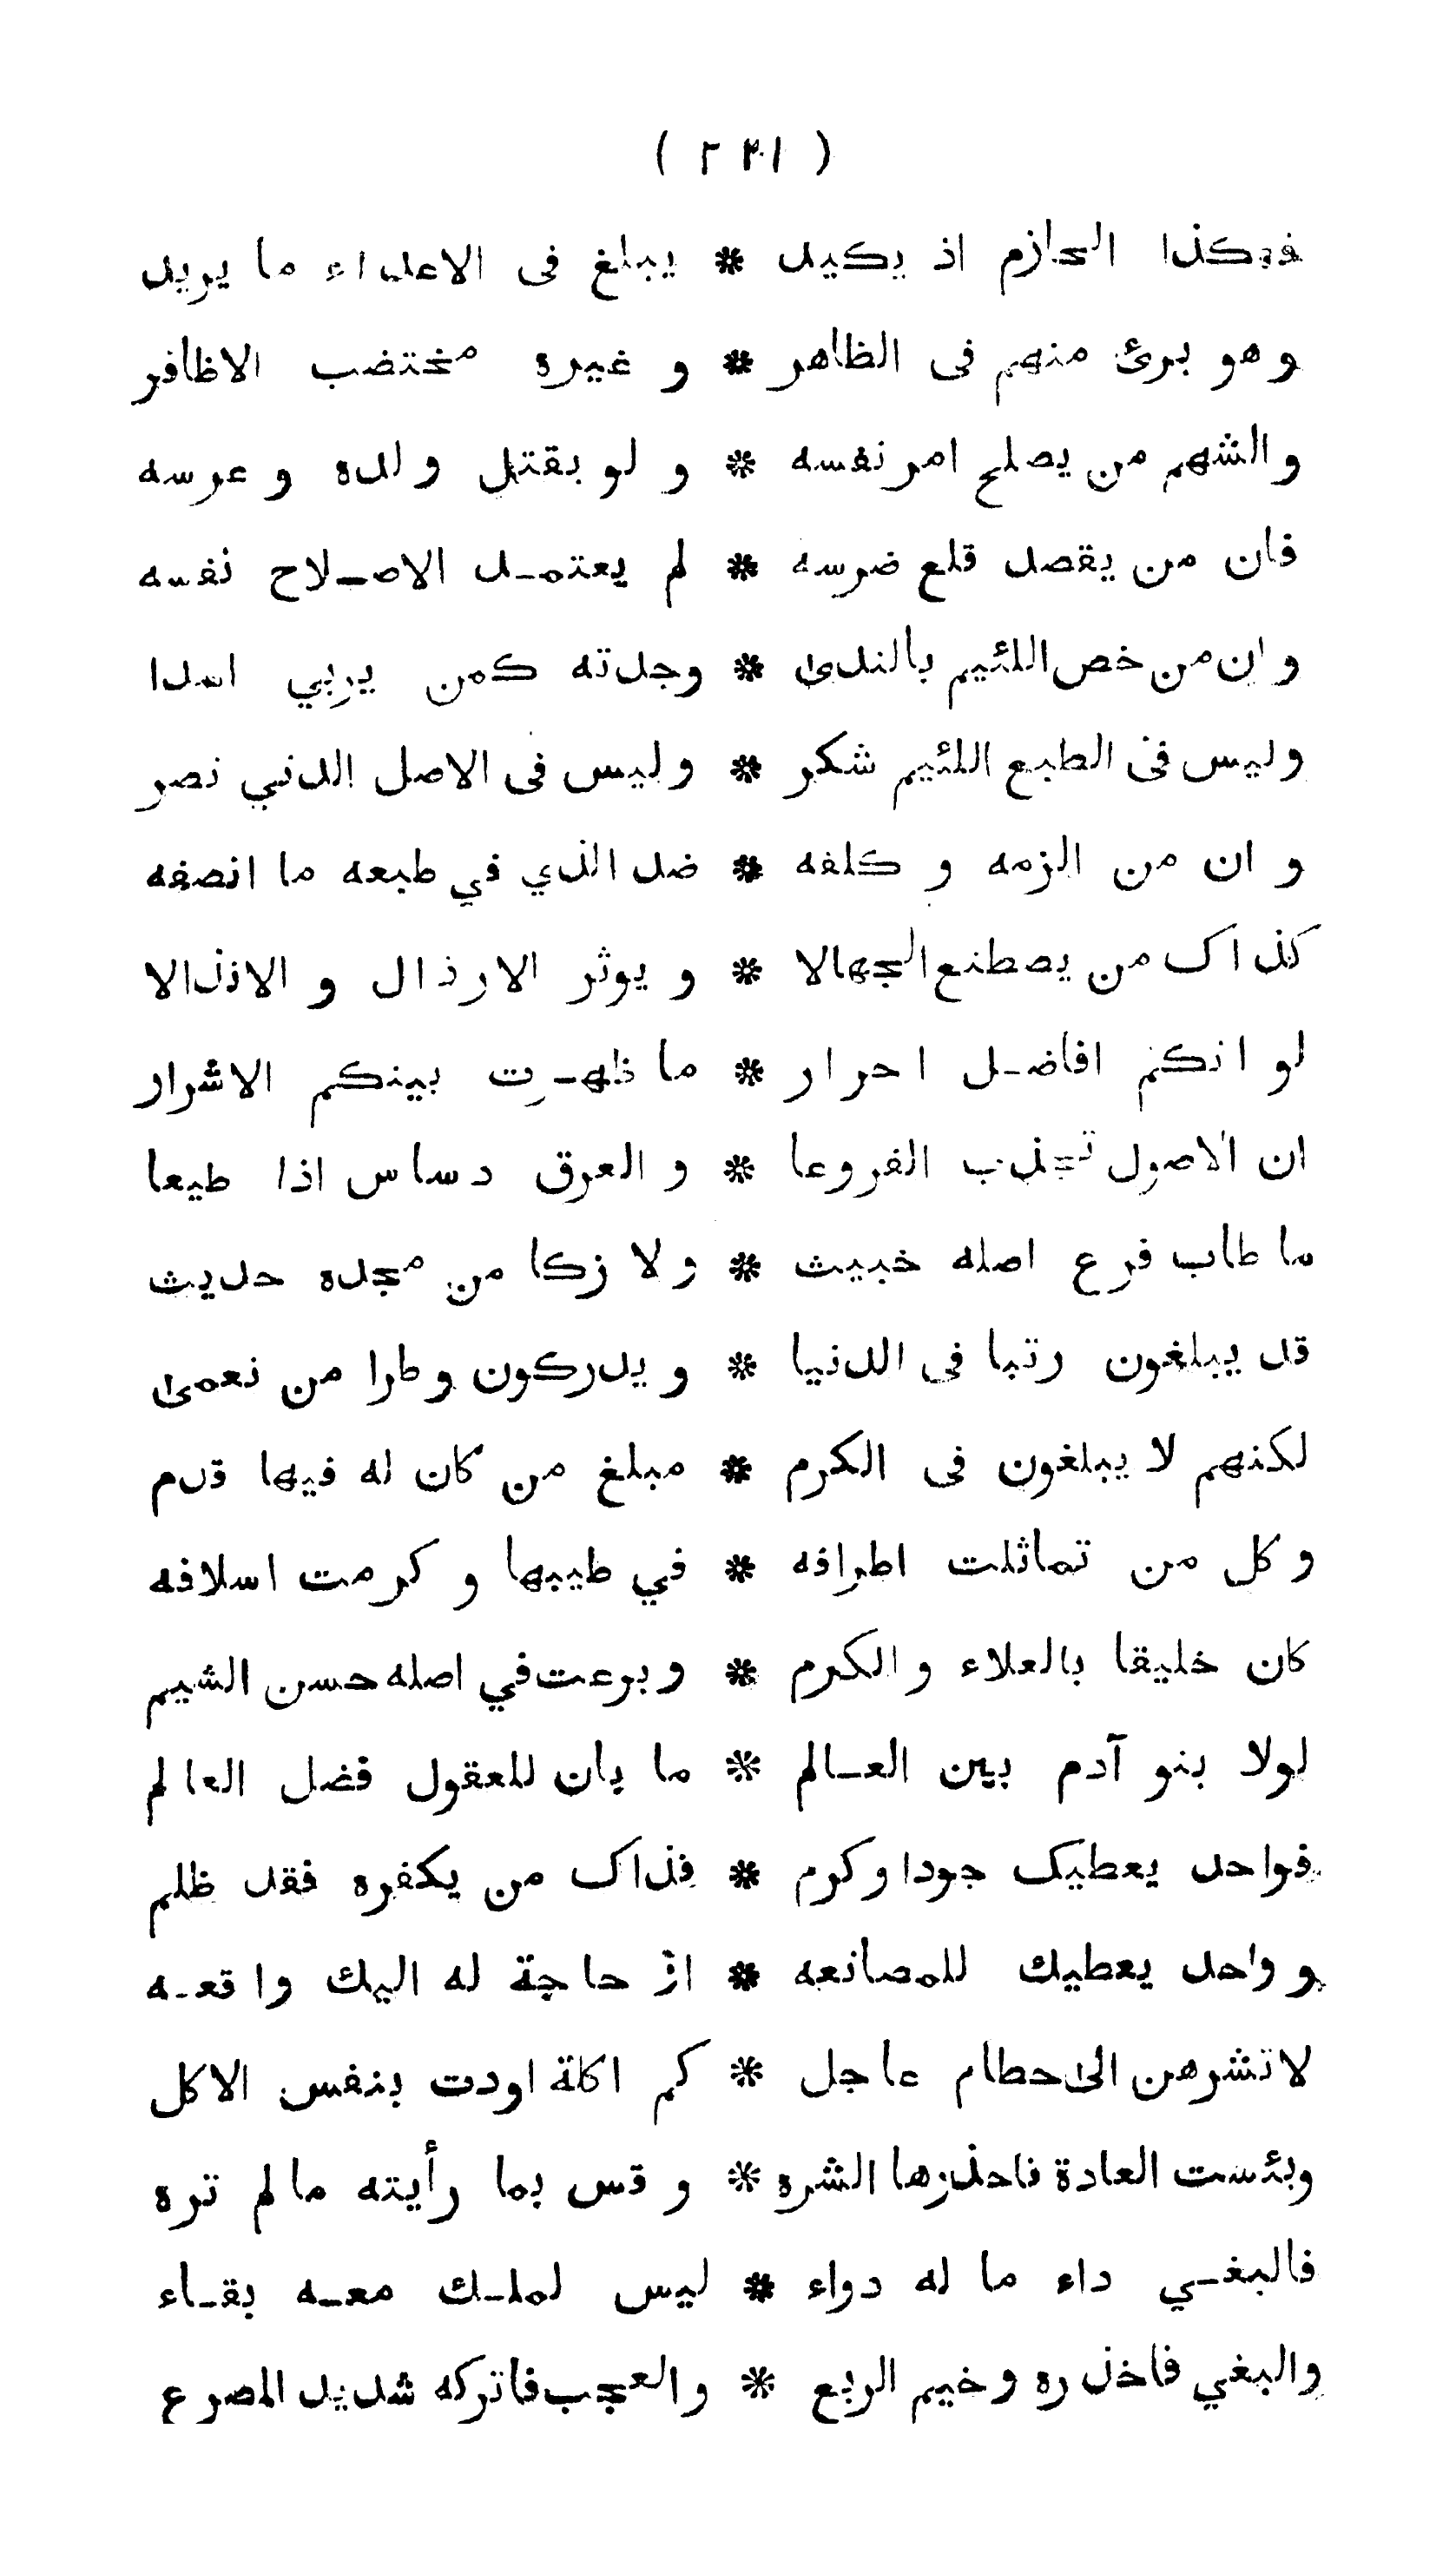 فهكذا الحازم اذ يكيد * يبلغ فى الاعداء ما يريد
وهو برئ منهم فى الظاهر * و غيره مختضب الاظافر
والشهم من يصلح امر نفسه * و لو بقتل ولده و عرسه
فان من يقصد قلع ضرسه * لم يعتمد الاصلاح نفسه
وان من خص اللئيم بالندى * وجدته كمن يربي اسدا
وليس فى الطبع اللئيم شكر * وليس فى الاصل الدني نصر
و ان من الزمه و كلفه * ضد الذي في طبعه ما انصفه
كذاك من يصطنع الجهالا * و يوثر الارذال و الانذالا
لو انكم افاضل احرار * ما ظهرت بينكم الاشرار
ان الاصول تجذب الفروعا * و العرق دساس اذا طيعا
ما طاب فرع اصله خبيث * ولا زكا من مجده حديث
قد يبلغون رتبا فى الدنيا * ويدركون وطرا من نعمى
لكنهم لا يبلغون فى الكرم * مبلغ من كان له فيها قدم
وكل من تماثلت اطرافه * في طيبها و كرمت اسلافه
كان خليقا بالعلاء والكرم * وبرعت في اصله حسن الشيم
لولا بنو آدم بين العالم * ما بان للعقول فضل العالم
فواحد يعطيك جودا وكرم * فذاك من يكفره فقد ظلم
وواحد يعطيك للمصانعه * اذ حاجة له اليك واقعه
لا تشرهن الى حطام عاجل * كم اكلة اودت بنفس الاكل
وبئست العادة فاحذرها الشره * و قس بما رأيته مالم تره
فالبغي داء ما له دواء * ليس لملك معه بقاء
والبغي فاخذره وخيم الربع * والعجب فاتركه شديد المصرع